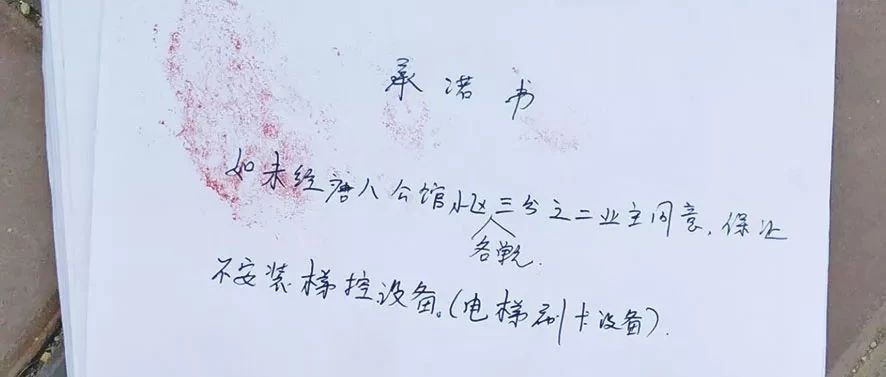 承诺书
如未经唐人公馆小区三分之二业主同意,保证
各单元.
不安装梯控设备。(电梯刷卡设备).